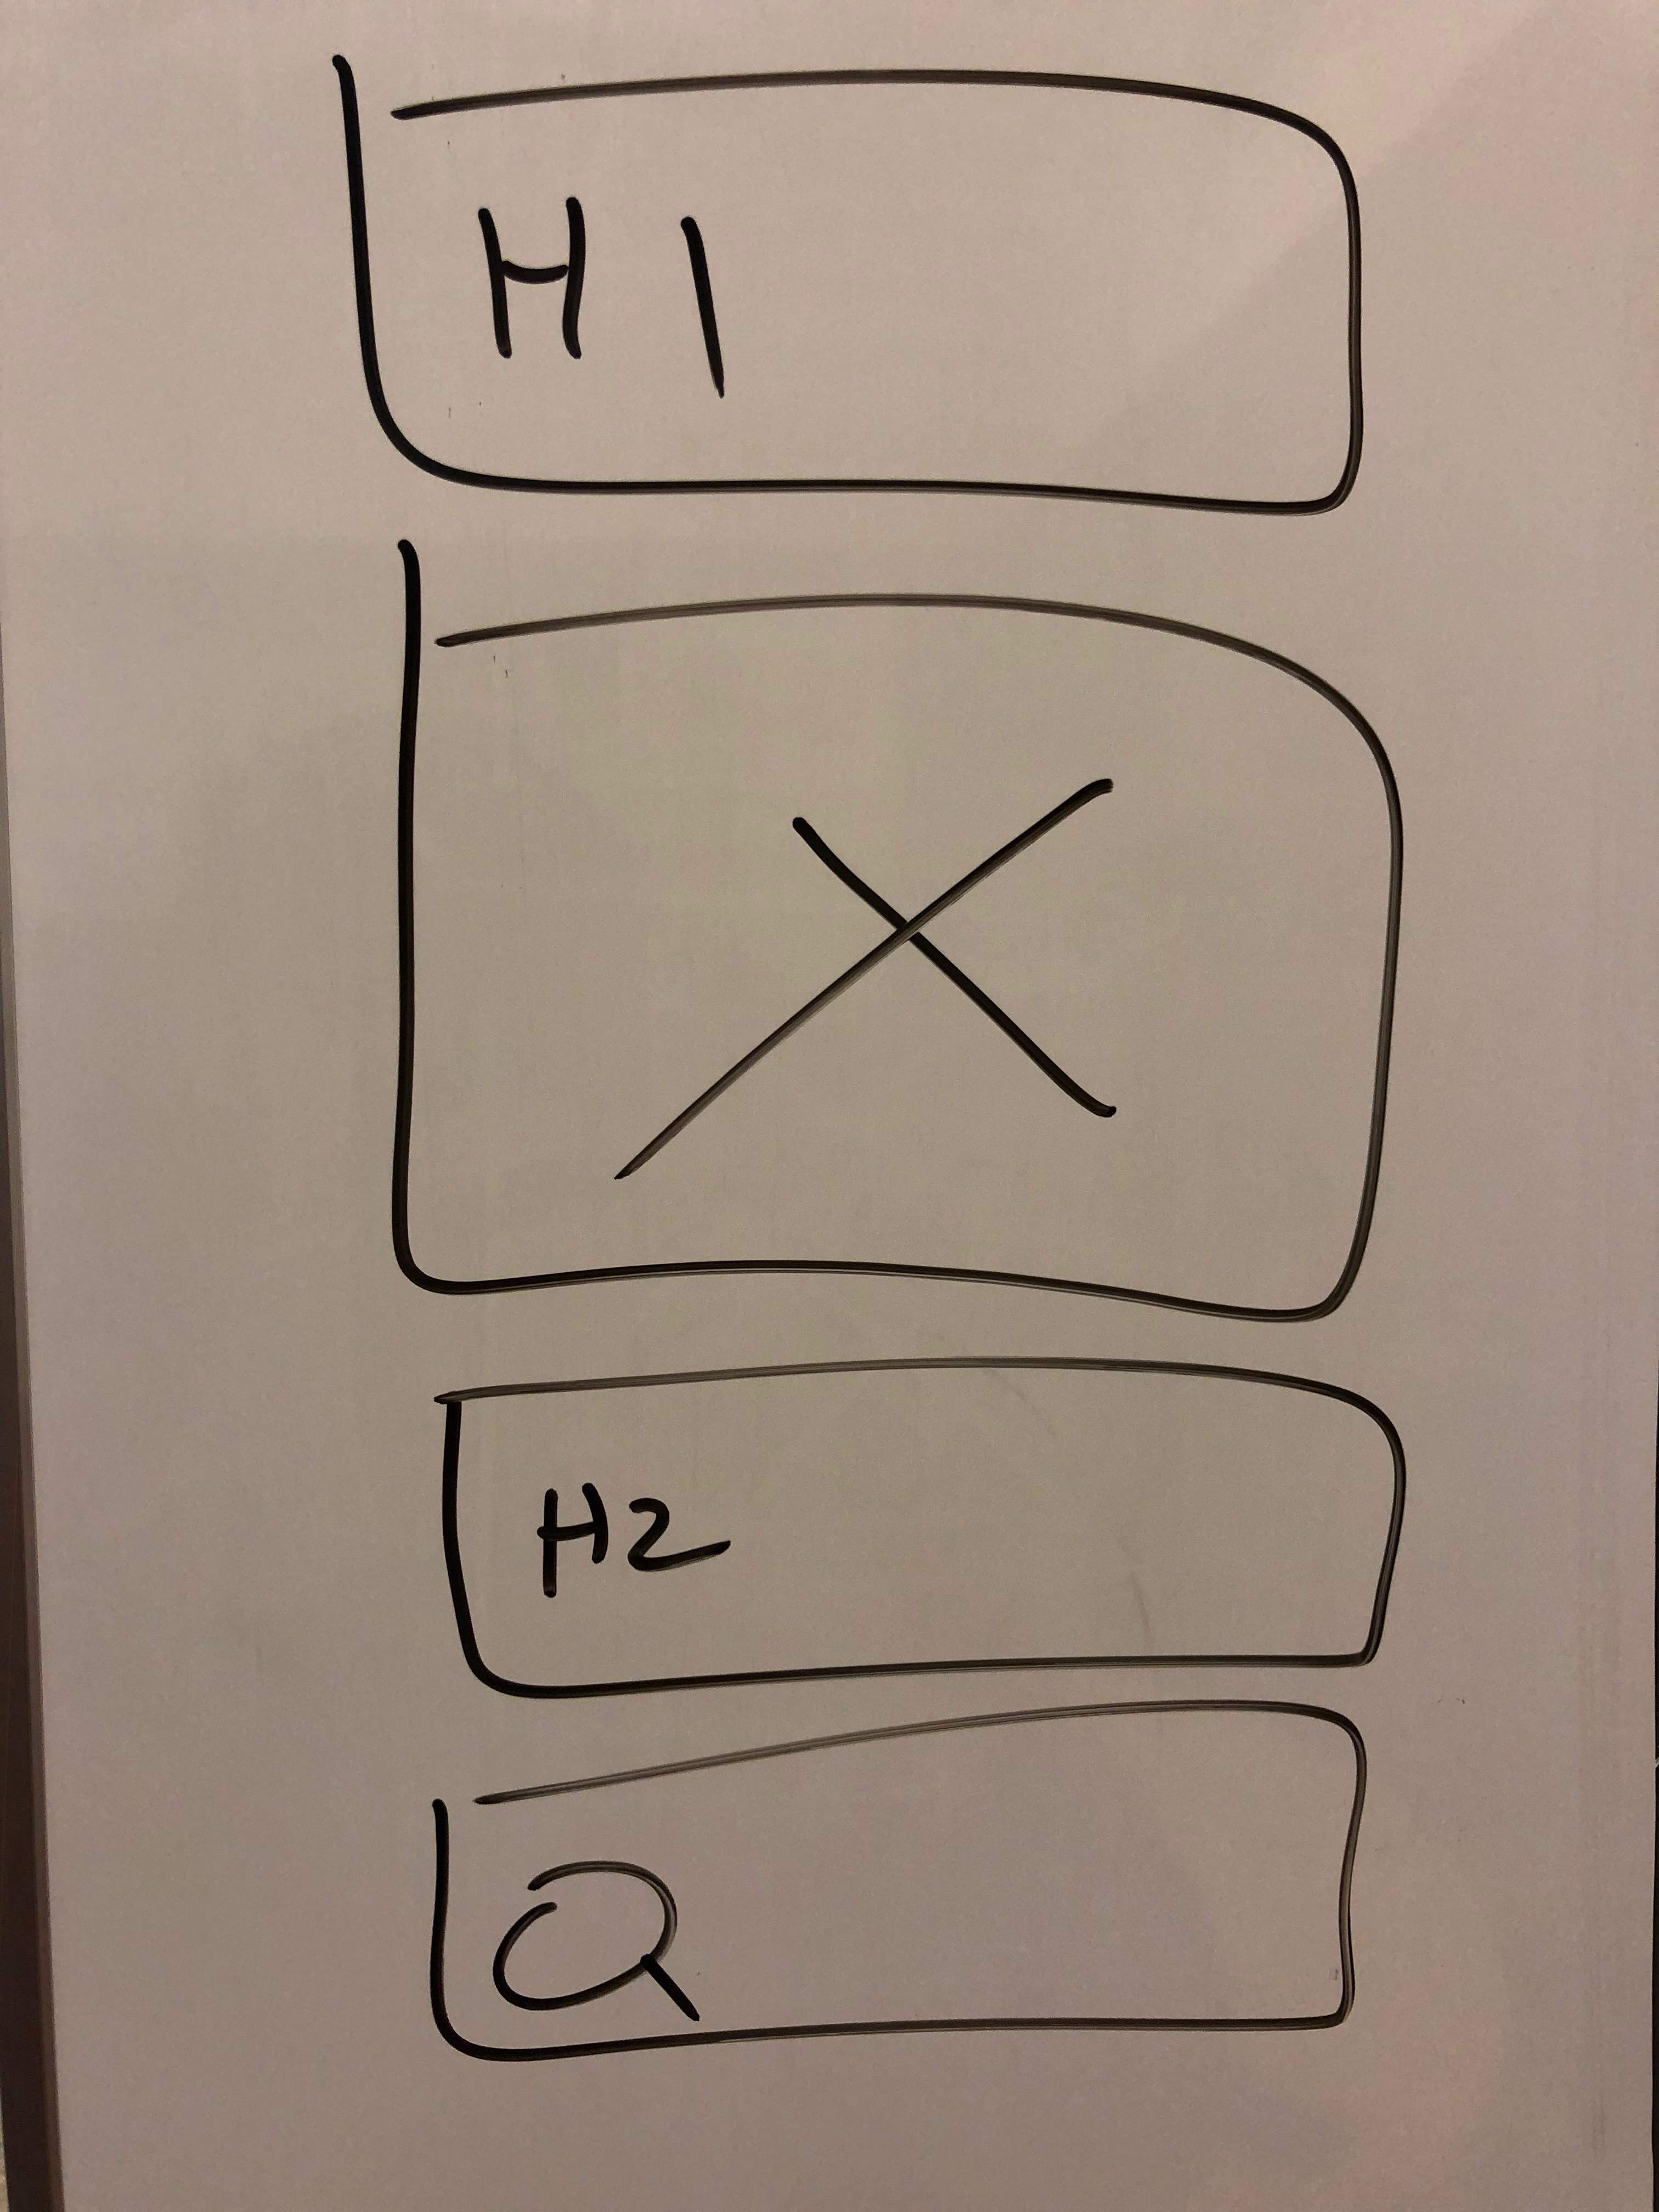 H1
X
H2
Q